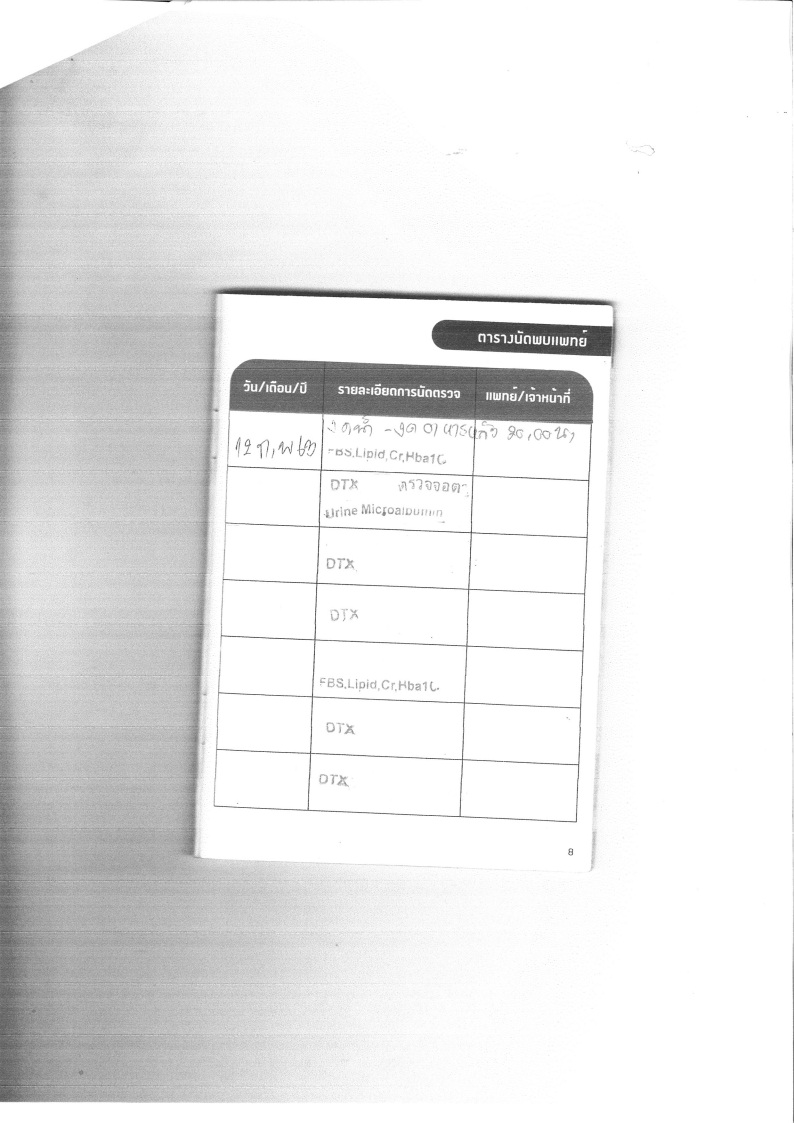 ตารางนัดพบแพทย์
วัน/เดือน/ปี
รายละเอียดการนัดตรวจ
แพทย์/เจ้าหน้าที่
งดน้ำ - งดอาหาร 20,00 น
FBS,Lipid,Cr,Hba1C
DTX ตรวจจอตา
Urine Microalbumin
DTX
DTX
FBS,Lipid,Cr,Hba1C
DTX
DTX
8